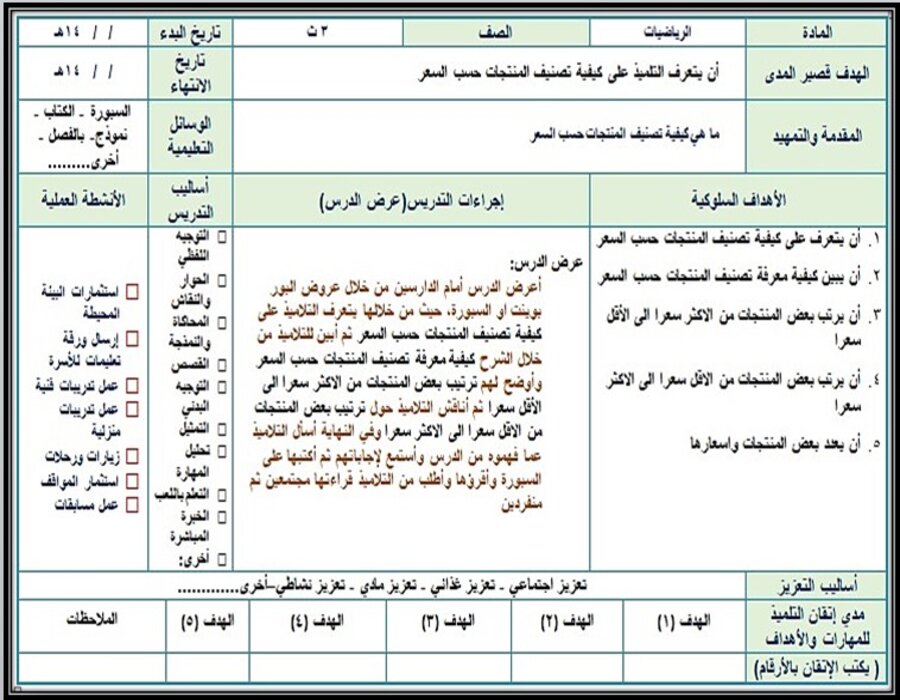 المادة الرياضيات الصف ٣ ث تاريخ البدء / / ١٤هـ
الهدف قصير المدى أن يتعرف التلميذ على كيفية تصنيف المنتجات حسب السعر تاريخ الانتهاء / / ١٤هـ
المقدمة والتمهيد ما هي كيفية تصنيف المنتجات حسب السعر الوسائل التعليمية
السبورة - الكتاب -
نموذج- بالفصل -
أخرى.........
الأهداف السلوكية إجراءات التدريس(عرض الدرس) أساليب التدريس الأنشطة العملية
١. أن يتعرف على كيفية تصنيف المنتجات حسب السعر
٢. أن يبين كيفية معرفة تصنيف المنتجات حسب السعر
٣. أن يرتب بعض المنتجات من الاكثر سعرا الى الأقل
سعرا
٤. أن يرتب بعض المنتجات من الاقل سعرا الى الاكثر
سعرا
٥. أن يعدد بعض المنتجات واسعارها
عرض الدرس:
أعرض الدرس أمام الدارسين من خلال عروض البور
بوينت او السبورة، حيث من خلالها يتعرف التلاميذ على
كيفية تصنيف المنتجات حسب السعر ثم أبين للتلاميذ من
خلال الشرح كيفية معرفة تصنيف المنتجات حسب السعر
وأوضح لهم ترتيب بعض المنتجات من الاكثر سعرا الى
الأقل سعرا ثم أناقش التلاميذ حول ترتيب بعض المنتجات
من الاقل سعرا الى الاكثر سعرا وفي النهاية أسأل التلاميذ
عما فهموه من الدرس وأستمع لإجاباتهم ثم أكتبها على
السبورة وأقرؤها وأطلب من التلاميذ قراءتها مجتمعين ثم
منفردين
التوجيه
اللفظي
الحوار
والنقاش
المحاكاة
والنمذجة
القصص
التوجيه
البدني
التمثيل
تحليل
المهارة
التعلم باللعب
الخبرة
المباشرة
أخرى:
استثمارات البيئة
المحيطة
إرسال ورقة
تعليمات للأسرة
عمل تدريبات فنية
عمل تدريبات
منزلية
زيارات ورحلات
استثمار المواقف
عمل مسابقات
أساليب التعزيز تعزيز اجتماعي - تعزيز غذائي - تعزيز مادي - تعزيز نشاطي–أخرى.............
مدي إتقان التلميذ
للمهارات والأهداف
الهدف (١) الهدف (٢) الهدف (٣) الهدف (٤) الهدف (٥) الملاحظات
( يكتب الإتقان بالأرقام)